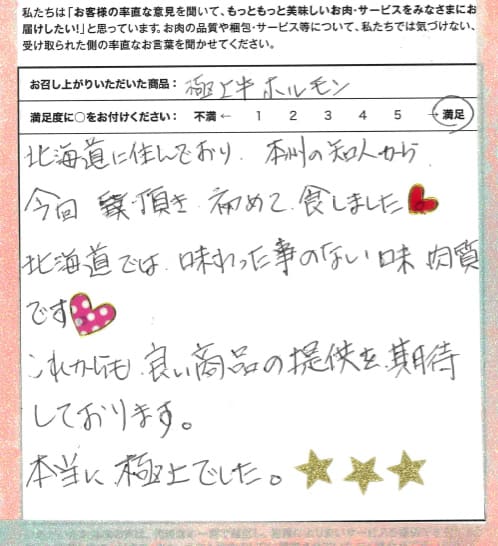 私たちは「お客様の率直な意見を聞いて、もっともっと美味しいお肉・サービスをみなさまにお
届けしたい!」と思っています。お肉の品質や梱包・サービス等について、私たちでは気づけない、
受け取られた側の率直なお言葉を聞かせてください。
お召し上がりいただいた商品: 極上牛ホルモン
満足度に○をお付けください: 不満 ← 1 2 3 4 5 → 満足
北海道に住んでおり、本州の知人から
今回 頂き 初めて 食しました
北海道では、味わった事のない味 肉質
です
これからも 良い商品の提供を、期待
しております。
本当に 極上でした。